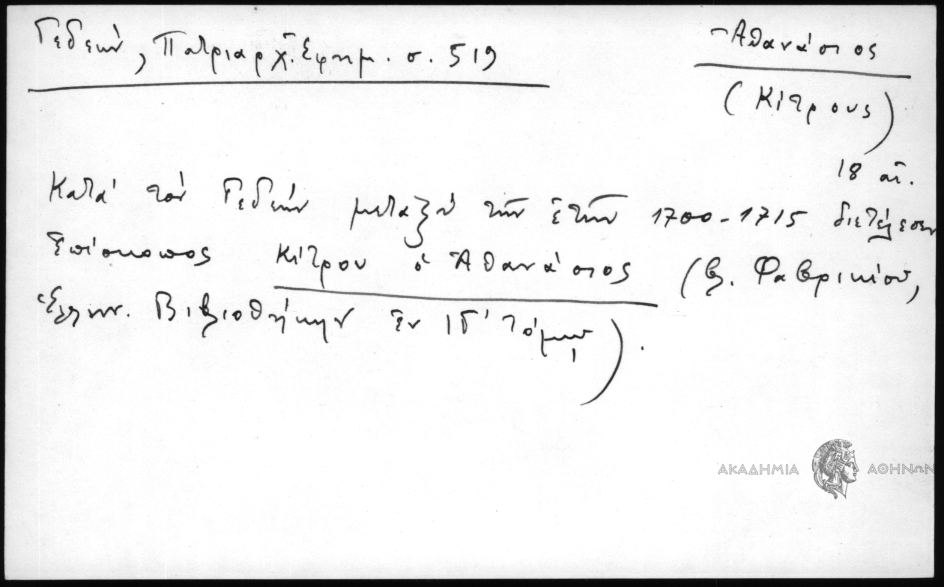 Γεδεών, Πατριαρχ. Εφημ. σ. 519
Ἀθανάσιος
(Κίτρους)
18 αἰ.
Κατά τόν Γεδεών μεταξύ τῶν ἐτῶν 1700-1715 διετέλεσεν
Ἐπίσκοπος Κίτρου ὁ Ἀθανάσιος (βλ. Φαβρικίου,
Ἑλλην. Βιβλιοθήκην ἐν ΙΓ' τόμῳ).
ΑΚΑΔΗΜΙΑ ΑΘΗΝΩΝ